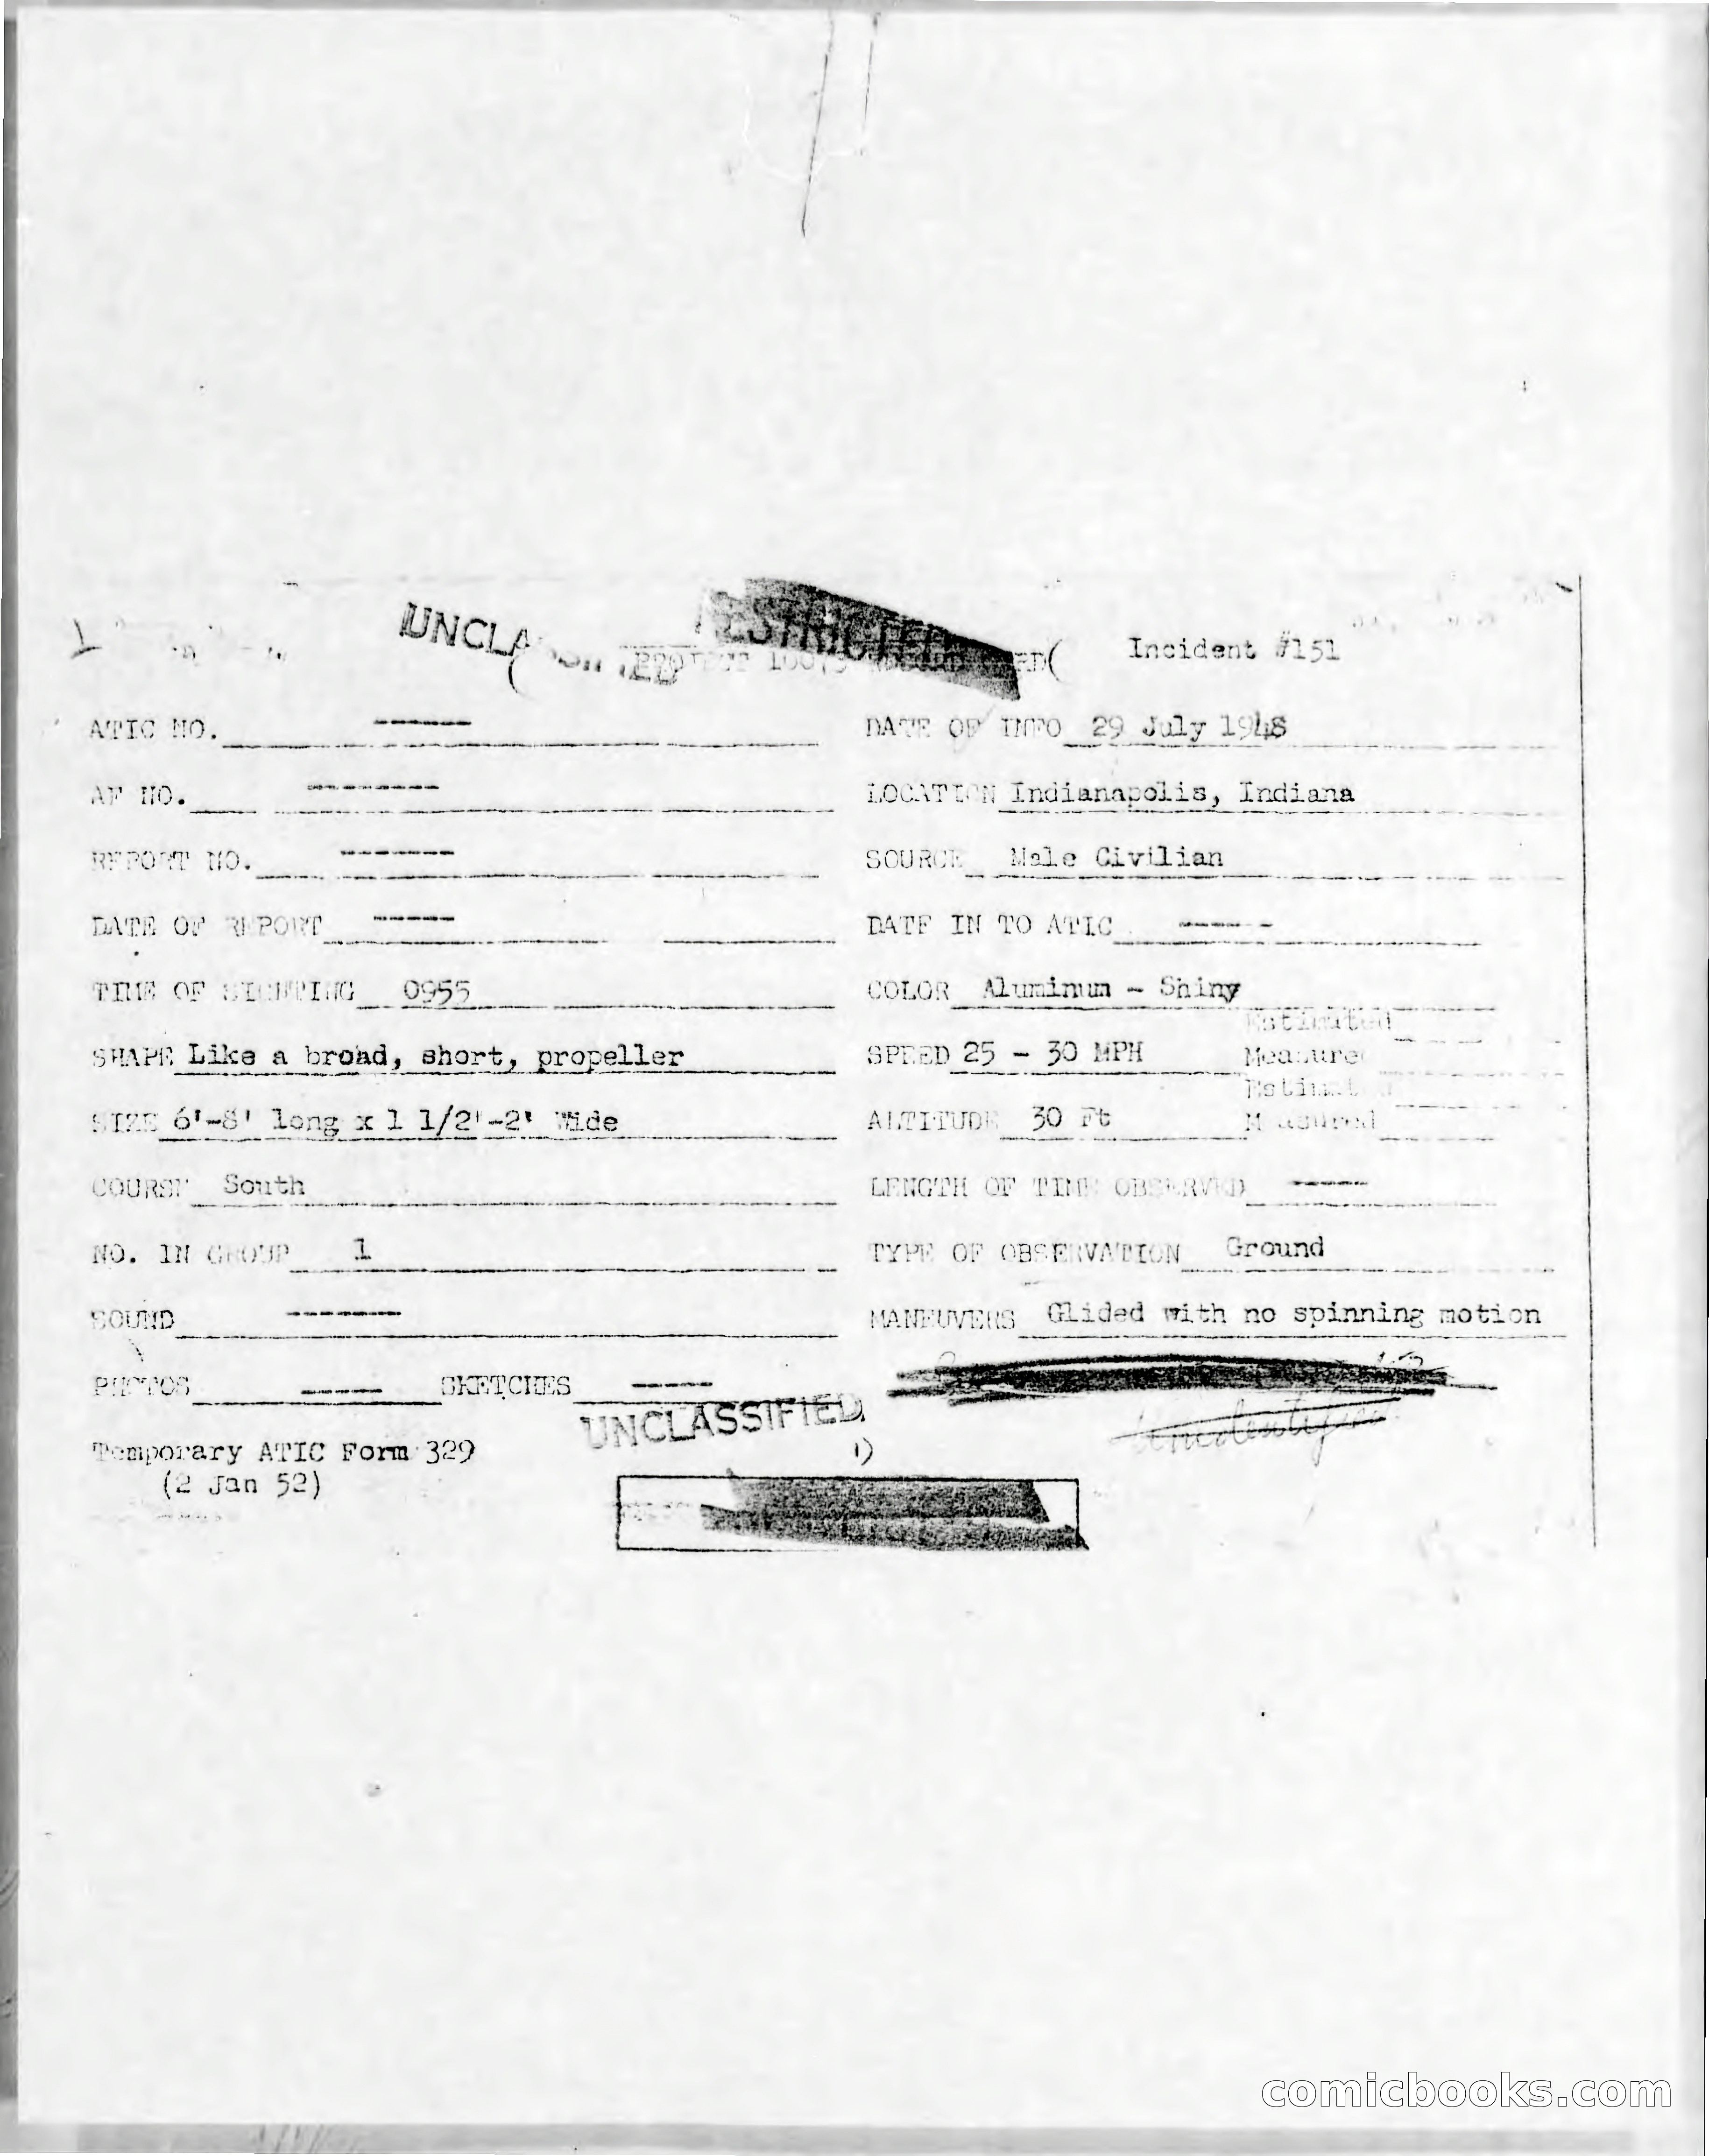 UNCLASSIFIED
RESTRICTED
PROJECT 10073
Incident #151
ATIC NO. -----
DATE OF INFO 29 July 1948
AF NO. -------
LOCATION Indianapolis, Indiana
REPORT NO. ------
SOURCE Male Civilian
DATE OF REPORT -----
DATE IN TO ATIC -----
TIME OF SIGHTING 0955
COLOR Aluminum - Shiny
SHAPE Like a broad, short, propeller
SPEED 25 - 30 MPH
Estimated
Measured
SIZE 6'-8' long x 1 1/2'-2' Wide
ALTITUDE 30 Ft
Estimated
Measured
COURSE South
LENGTH OF TIME OBSERVED -----
NO. IN GROUP 1
TYPE OF OBSERVATION Ground
SOUND -------
MANEUVERS Glided with no spinning motion
PHOTOS ----- SKETCHES -----
UNCLASSIFIED
Temporary ATIC Form 329
(2 Jan 52)
comicbooks.com